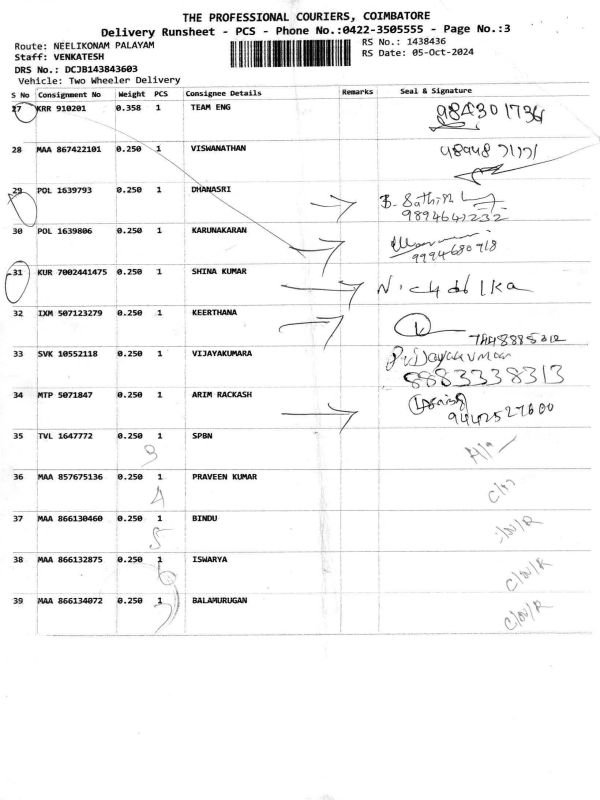 THE PROFESSIONAL COURIERS, COIMBATORE
Delivery Runsheet - PCS - Phone No.:0422-3505555 - Page No.:3
Route: NEELIKONAM PALAYAM
RS No.: 1438436
Staff: VENKATESH
RS Date: 05-Oct-2024
DRS No.: DCJB143843603
Vehicle: Two Wheeler Delivery
S No Consignment No Weight PCS Consignee Details Remarks Seal & Signature
27 KRR 910201 0.358 1 TEAM ENG 984301736
28 MAA 867422101 0.250 1 VISWANATHAN
29 POL 1639793 0.250 1 DHANASRI B. Sathish
9894641232
30 POL 1639806 0.250 1 KARUNAKARAN
9994680918
31 KUR 7002441475 0.250 1 SHINA KUMAR
32 IXM 507123279 0.250 1 KEERTHANA
33 SVK 10552118 0.250 1 VIJAYAKUMARA
8883338313
34 MTP 5071847 0.250 1 ARIM RACKASH
9442527600
35 TVL 1647772 0.250 1 SPBN
3
36 MAA 857675136 0.250 1 PRAVEEN KUMAR
4
37 MAA 866130460 0.250 1 BINDU
5
38 MAA 866132875 0.250 1 ISWARYA
6
39 MAA 866134072 0.250 1 BALAMURUGAN